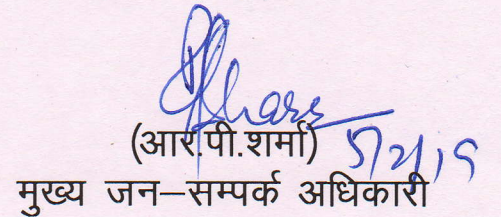 (आर.पी.शर्मा)
मुख्य जन–सम्पर्क अधिकारी